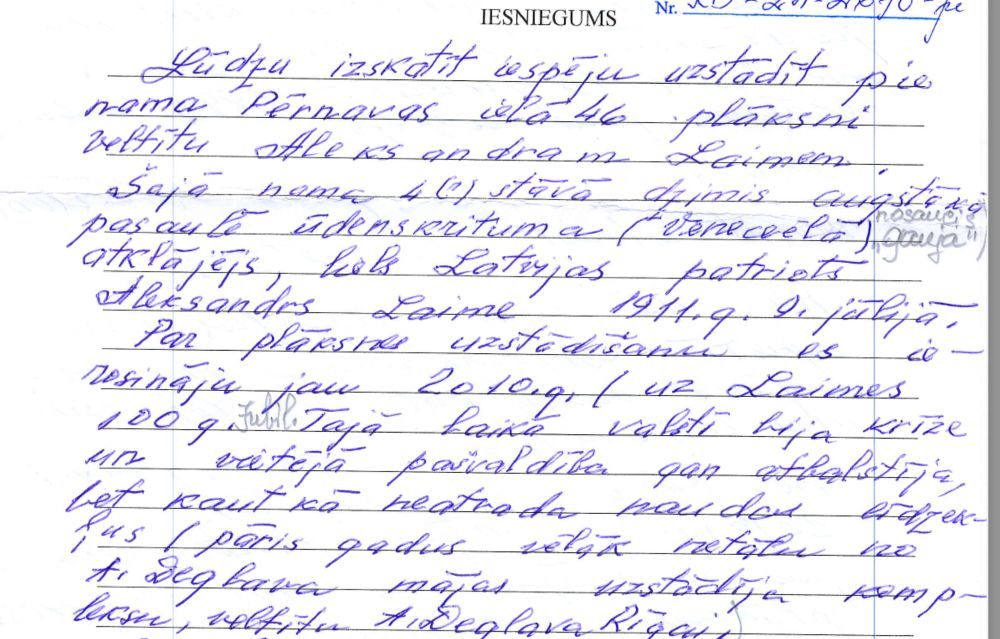 IESNIEGUMS
Nr.
Lūdzu izskatīt iespēju uzstādīt pie
nama Pērnavas ielā 46 plāksni
veltītu Aleksandram Laimem.
Šajā nama 4(?) stāvā dzimis augstākā
pasaulē ūdenskrituma (Venecuēlā) nosaucis
"gauja")
atklājējs, liels Latvijas patriots
Aleksandrs Laime 1911.g. 9. jūlijā.
Par plāksnes uzstādīšanu es ie-
rosināju jau 2010.g. (uz Laimes
100 g. Jubil. Tajā laikā valstī bija krīze
un vietējā pašvaldība gan atbalstīja,
bet kaut kā neatrada naudas līdzek-
ļus (pāris gadus vēlāk netālu no
A. Deglava mājas uzstādīja komp-
leksu, veltītu A. Deglava Rīgai,